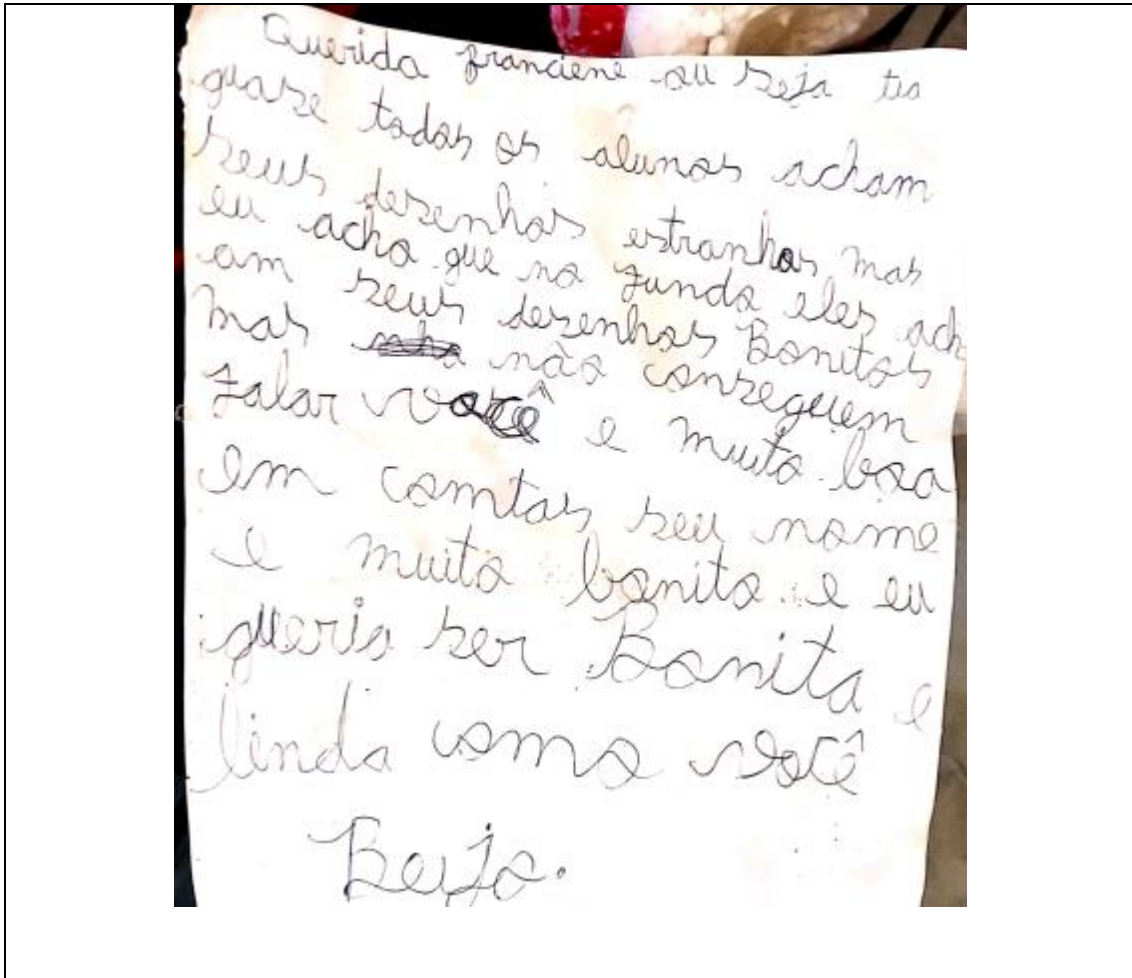 Querida franciene ou seja tia
quaze todos os alunos acham
seus dezenhos estranhos mas
eu acho que no fundo eles ach
am seus dezenhos Bonitos
mas não conseguem
falar você e muito boa
em comtas seu nome
e muito bonito e eu
queria ser Bonita e
linda como você
Beijo.